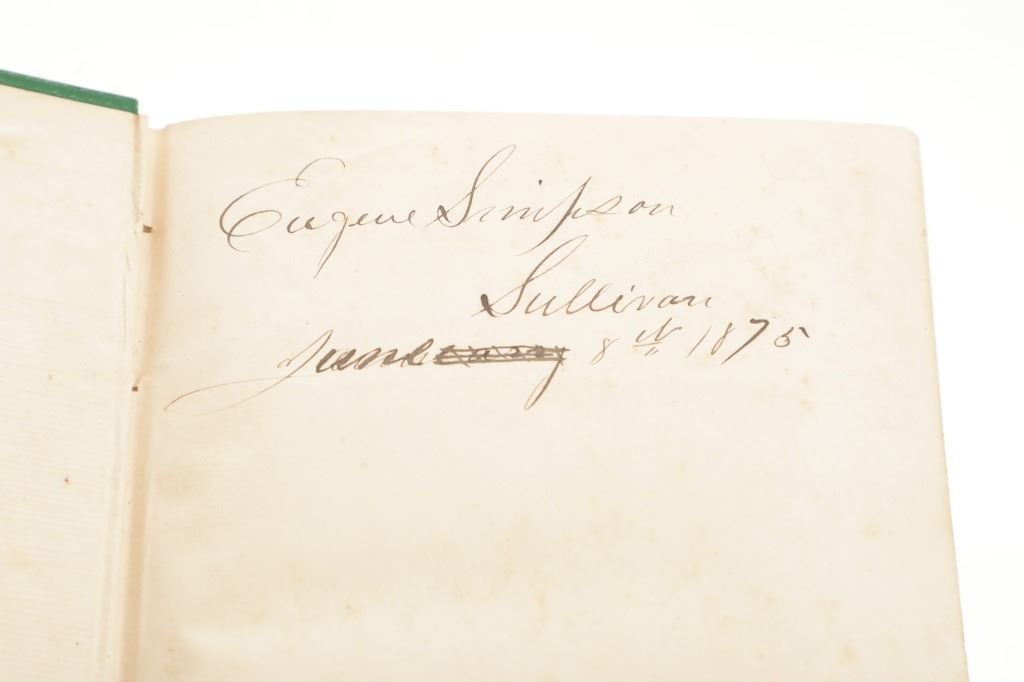 Eugene Simpson
Sullivan
June 8th 1875